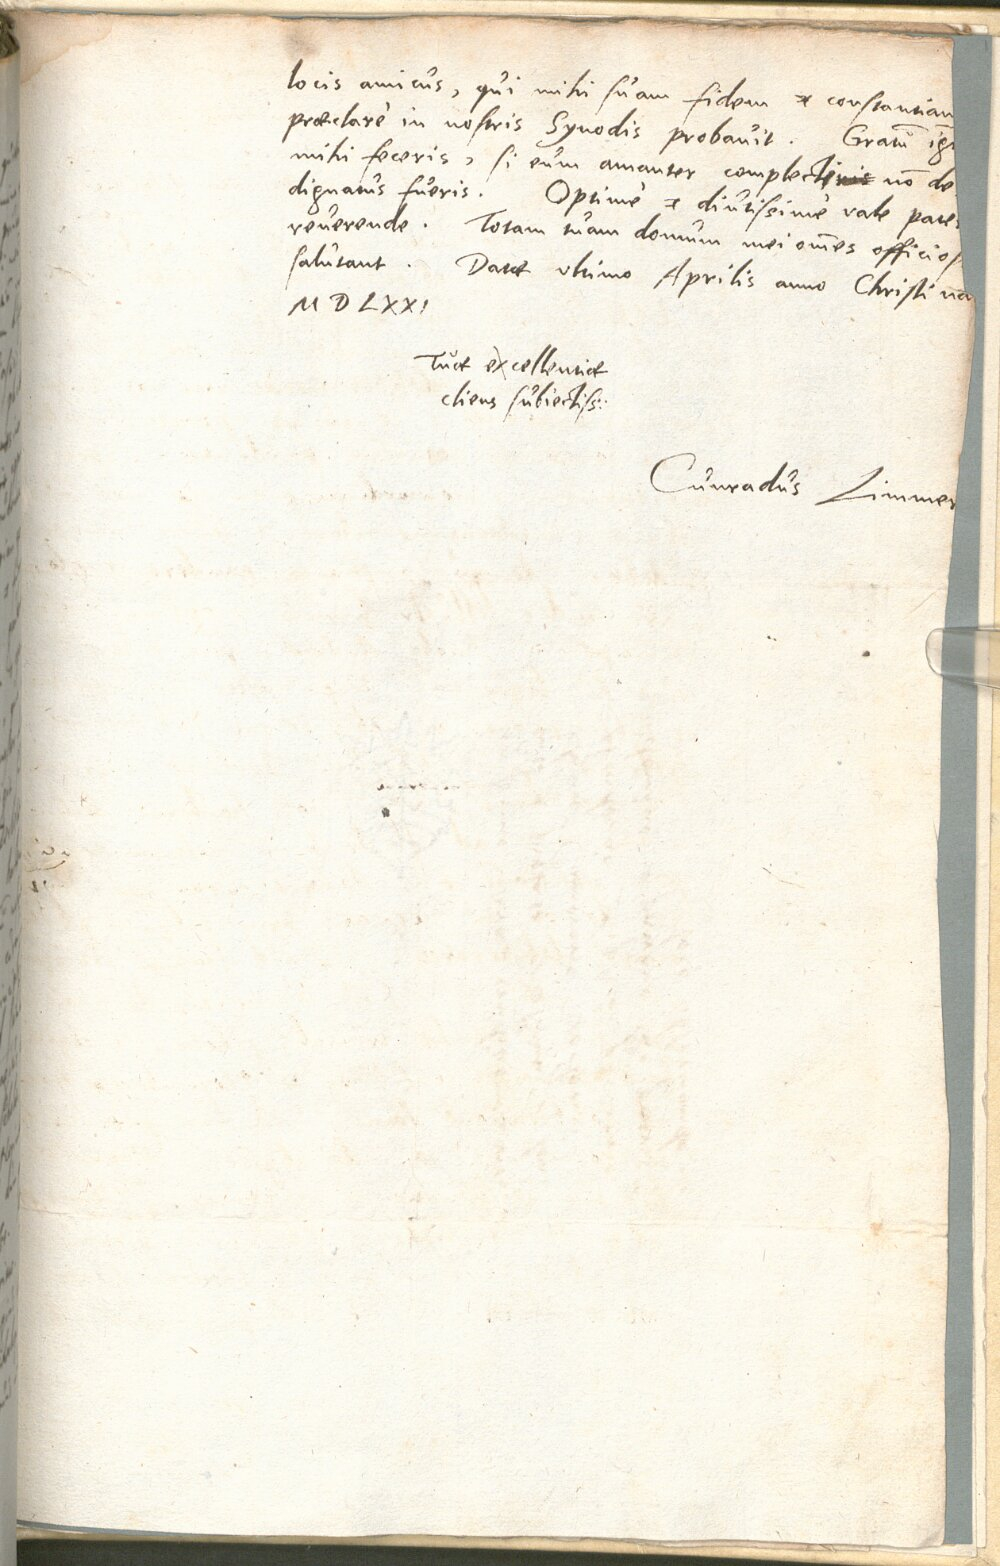 locis amicus, qui mihi suam fidem & constantiam
præclarè in nostris Synodis probavit. Gratū ig
mihi feceris, si eum amanter complecti nō de
dignatus fueris. Optimè & diutissimè vale pater
reverende. Totam tuam domum mei om̄es officios
salutant. Datæ ultimo Aprilis anno Christi
MDLXXI
Tuæ excellentiæ
cliens subiectiss:
Cunradus Zimmer